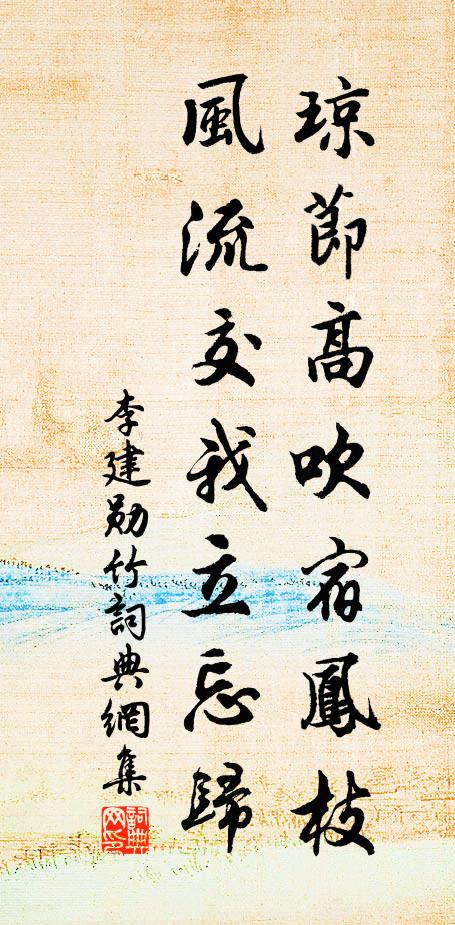 琼節高吹宿鳳枝
風流交我立忘歸
李建勛竹詞典網集
詞典网印